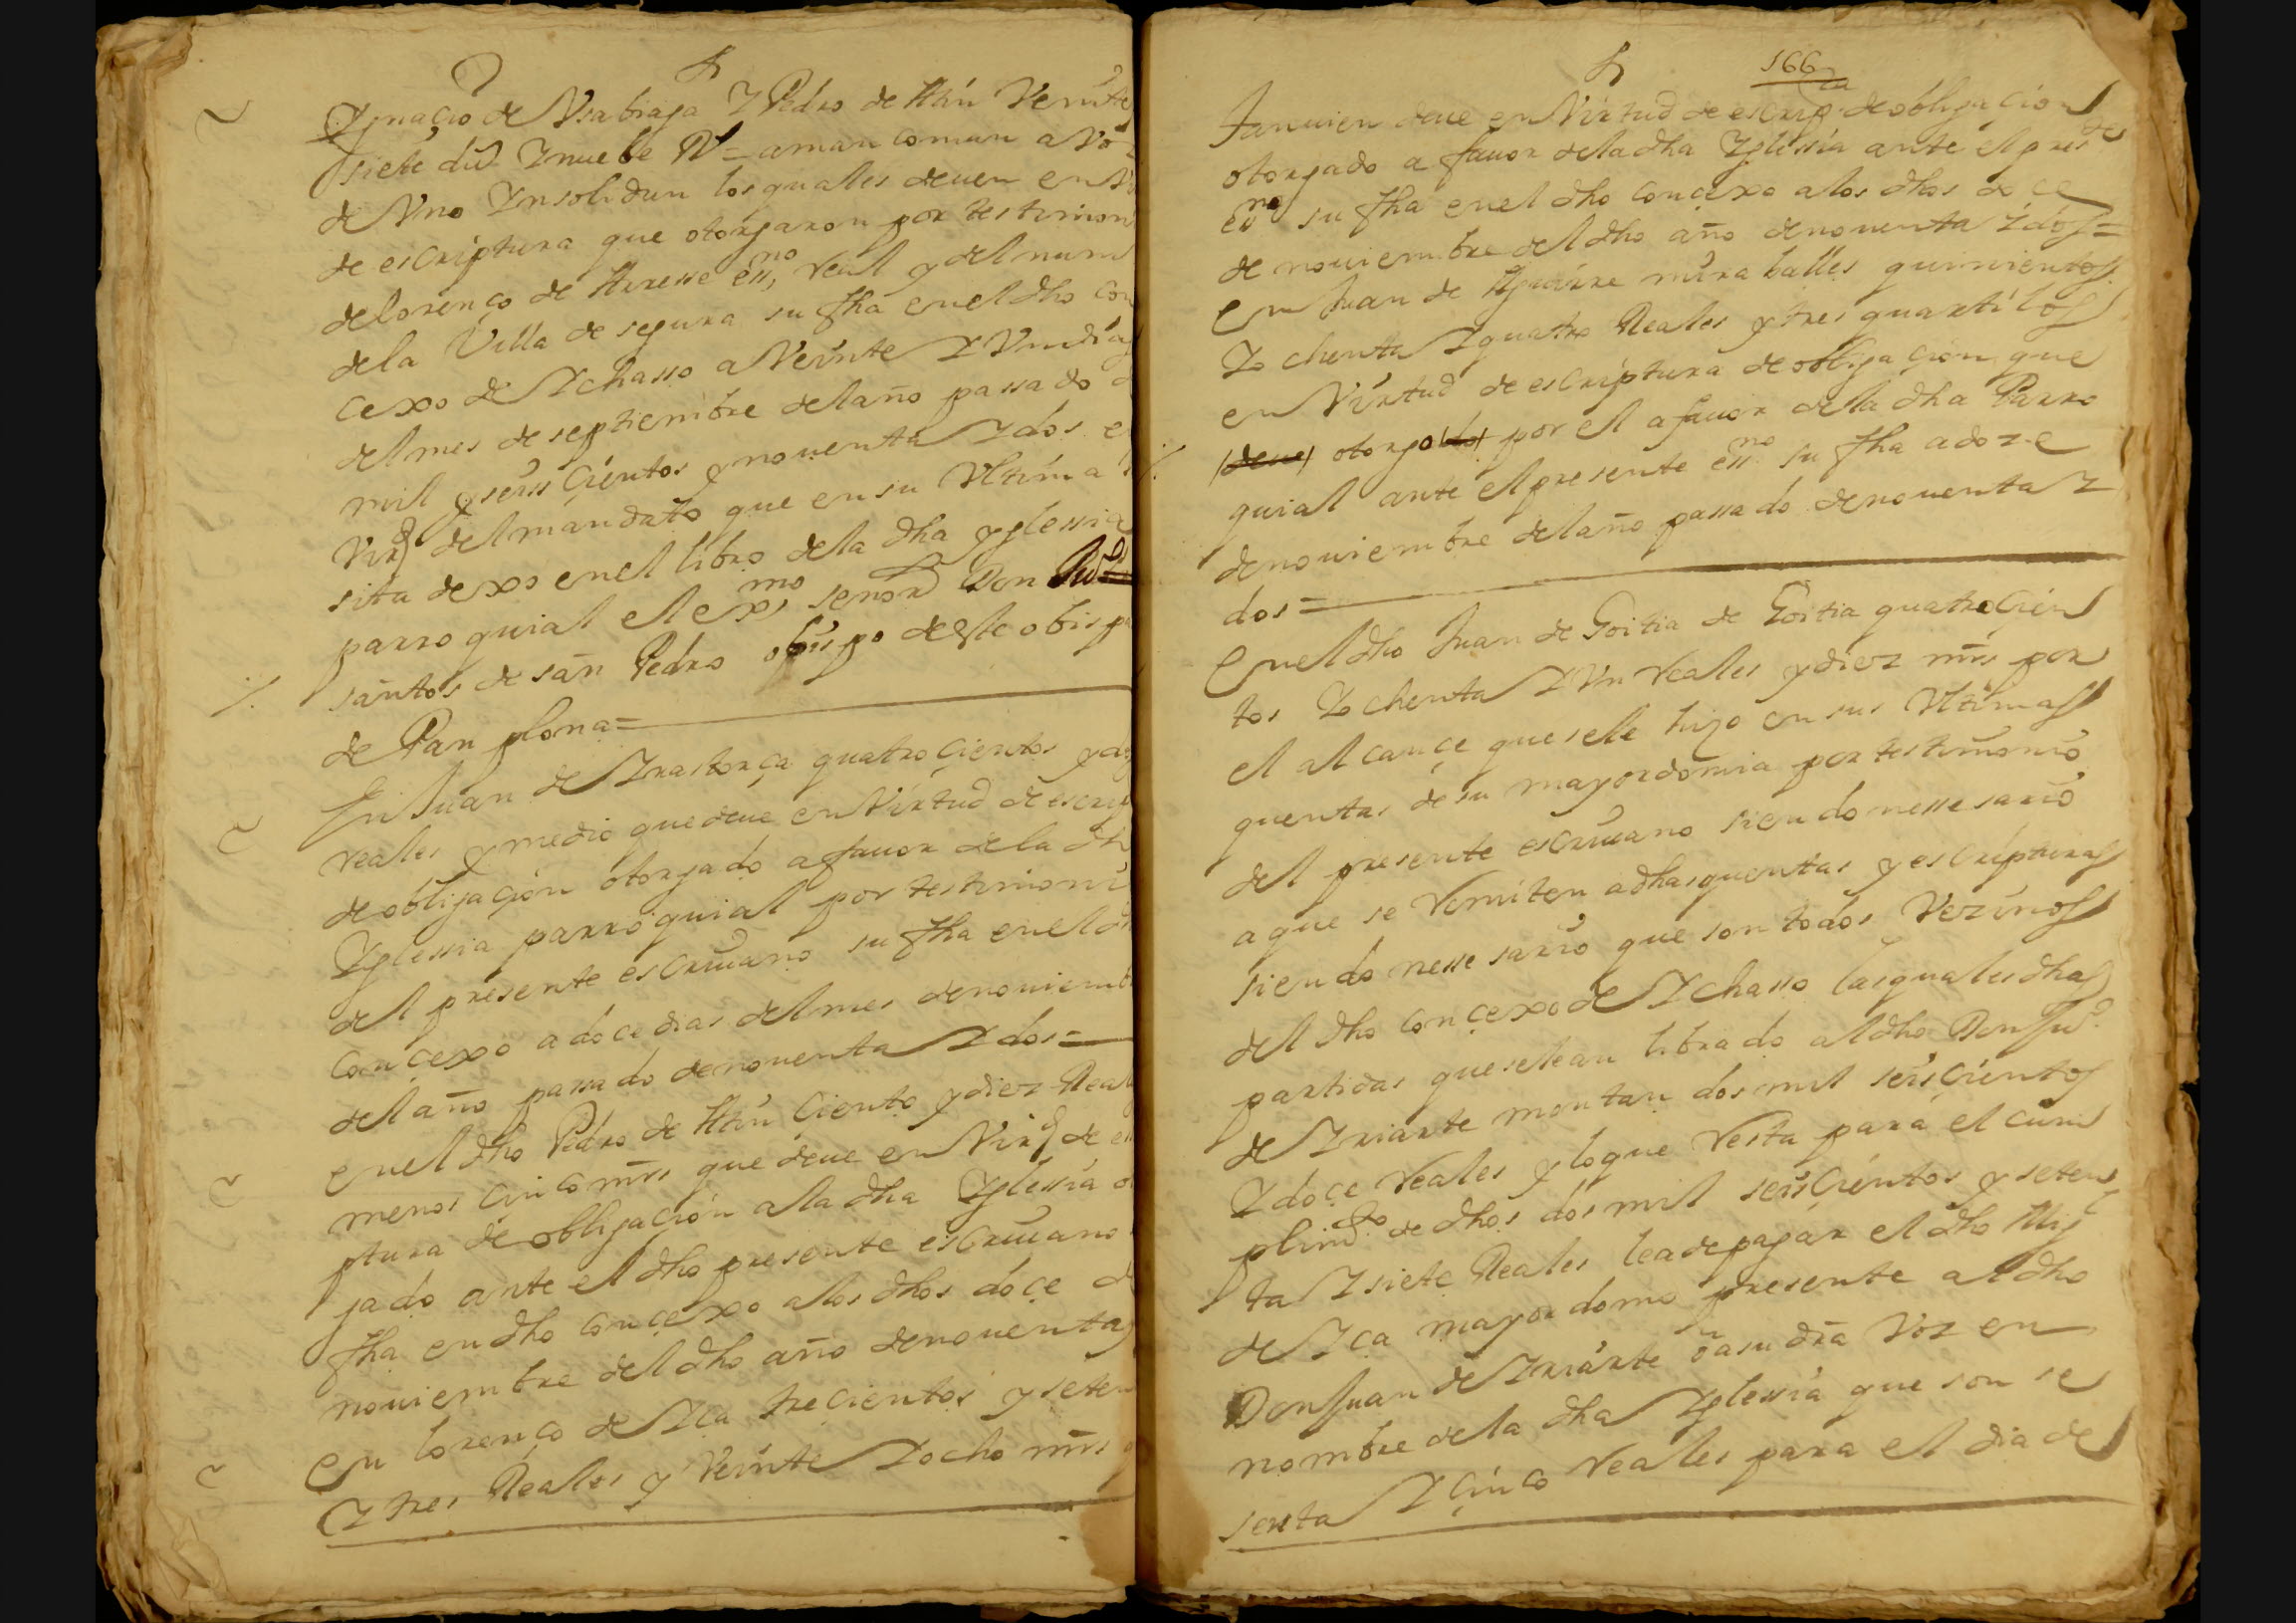 Ygnaçio de Vsabiaga Y Pedro de Attin Veinte
siete du.s Y nuebe Rs = amancomun a Vo
de Vno Ynsolidun los quales deuen en Vi
de escriptura que otorgaron por testimon
de lorenço de Aresse essno, real y del num
de la Villa de segura su fha en el dho con
cexo de Ychasso a Veinte Y Vn dias
del mes de septiembre del año passado d
mil y seiss Cientos y nouenta Y dos e
Virtd del mandatto que en su Vltima
sita dexo en el libro de la dha yglessia
parroquial el exmo, señor Don
santos de san Pedro obispo deste obispa
de Pan plona =
En Juan de Yrastorça quatroçientos y
reales y medio que deue en Virtud de escrip
de obligaçion otorgado a fauor de la dh
Yglessia parroquial por testimoni
del presente escriuano su fha en el d
Conçexo a doce dias del mes de nouiemb
del año passado de nouenta Y dos =
en el dho Pedro de Attin Ciento y diez Real
menos cinco mrs que deue en Virtd de es
ptura de obligaçion a la dha Yglessia o
gado ante el dho presente escriuano
fha en dho conçexo a los dhos doçe d
nouiembre del dho año de nouenta y
En lorenço de Yça trecientos y seten
Y tres Reales y Veinte Y ocho mrs q
166
tanuien deue en Virtud de escripra de obligaçion
otorgado a fauor de la dha Yglessia ante el pres
esno su fha en el dho conçexo a los dhos doce
de nouiembre del dho año de nouenta Y dos =
En Juan de Aguirre miraballes quinientos
Y ochenta Y quatro Reales y tres quartillos
en Virtud de escriptura de obligaçion que
deue otorgo por el a fauor de la dha Parro
quial ante el presente essno su fha a doze
de nouiembre del año passado de nouenta Y
dos =
En el dho Juan de Goitia de Goitia quatroçien
tos Y ochenta Y Vn reales y diez mrs por
el alcançe que se le hizo en sus Vltimas
quentas de su mayordomia por testimonio
del presente escriuano siendo nessesario
a que se remiten a dhas quentas y escripturas
siendo nessesario que son todos Vezinos
del dho conçexo de Ychasso las quales dhas
partidas que se le an librado al dho Don Juo
de Yriarte montan dos mil seisçientos
Y doçe reales y lo que resta para el cum
plimto de dhos dos mil seisçientos y seten
ta Y siete Reales le a de pagar el dho Migl
de Yça mayordomo presente al dho
Don Juan de Yriarte o a su dra Voz en
nombre de la dha Yglessia que son se
senta Y çinco reales para el dia de